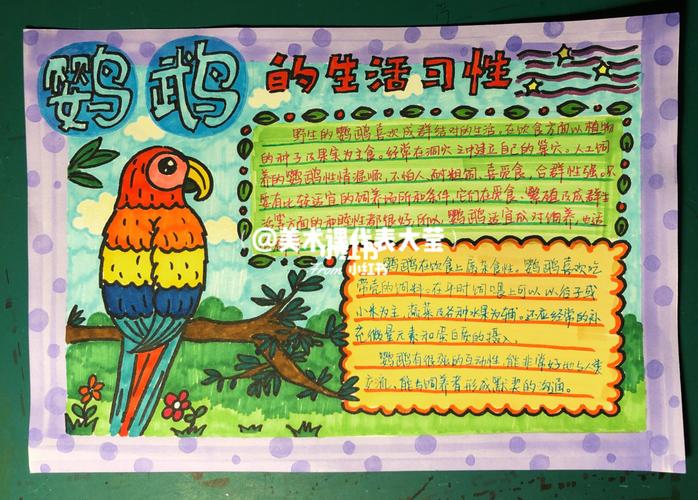 鹦鹉的生活习性
野生的鹦鹉喜欢成群结对的生活,在饮食方面以植物
的种子及果实为主食。经常在洞穴之中建立自己的巢穴。人工饲
养的鹦鹉性情温顺,不怕人,耐粗饲,喜觅食,合群性强。只
要有比较适宜的饲养场所和条件,它们在觅食、繁殖及成群生
活等方面的种哗性都很好,所以,鹦鹉适宜成对饲养,也适
@美术课代表大莹
小红书
from 小红书
鹦鹉在饮食上属杂食性。鹦鹉喜欢吃
带壳的饲料。在平时饲喂上可以以谷子或
小米为主,蔬菜及各种水果为辅。还应经常的补
充微量元素和蛋白质的摄入。
鹦鹉有很强的互动性,能非常好地与人类
交流,能与饲养者形成默契的沟通。